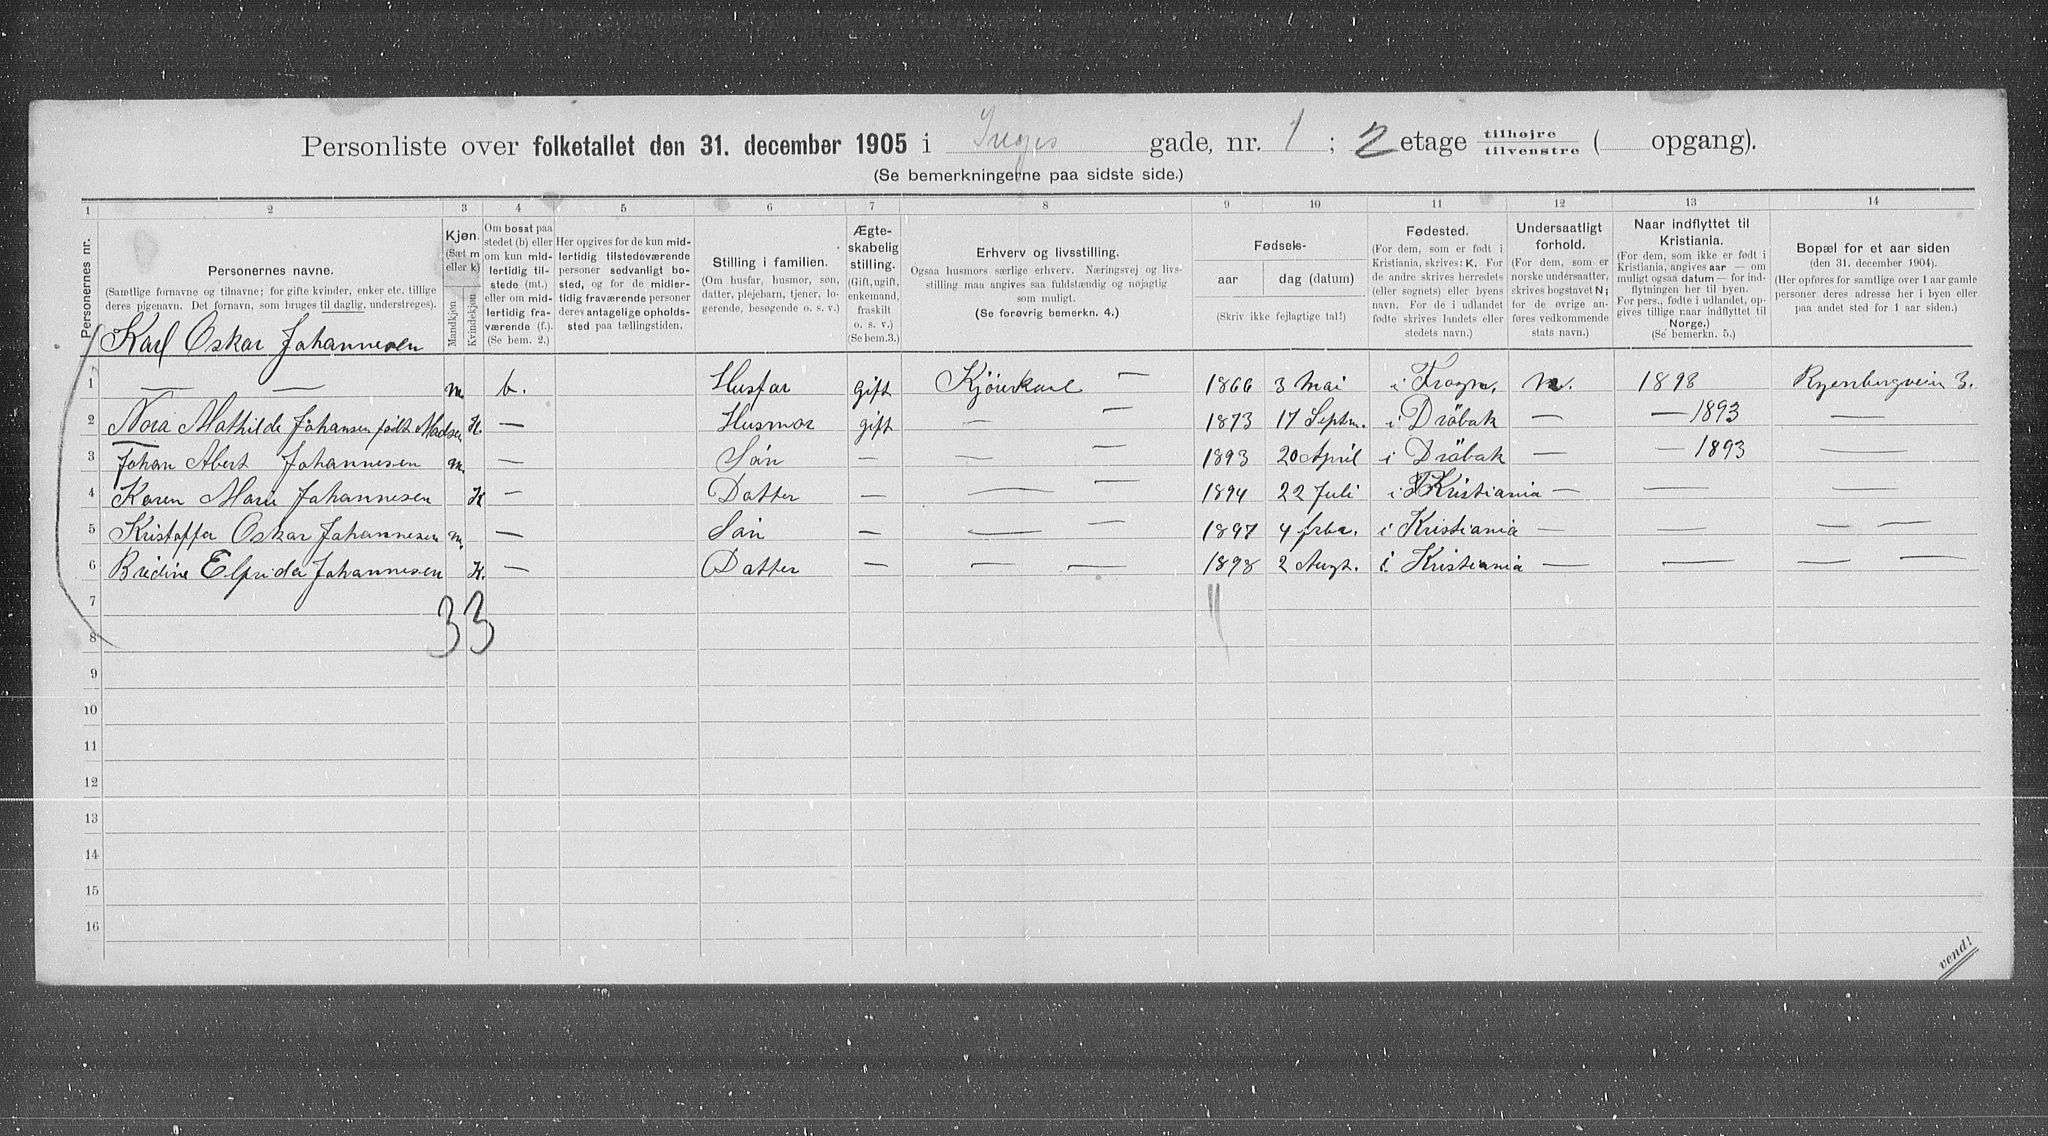 Personliste over folketallet den 31. december 1905 i Inges gade, nr. 1 ; 2 etage tilhøjre tilvenstre ( opgang).
(Se bemerkningerne paa sidste side.)
1 2 3 4 5 6 7 8 9 10 11 12 13 14
Personernes nr.
Personernes navne.
(Samtlige fornavne og tilnavne; for gifte kvinder, enker etc. tillige
deres pigenavn. Det fornavn, som bruges til daglig, understreges).
Kjøn.
(Sæt m
eller k)
Mandkjøn.
Kvindekjøn.
Om bosat paa
stedet (b) eller
om kun mid-
lertidig til-
stede (mt.)
eller om mid-
lertidig fra-
værende (f.).
(Se bem. 2.)
Her opgives for de kun mid-
lertidig tilstedeværende
personer sedvanligt bo-
sted, og for de midler-
tidig fraværende personer
deres antagelige opholds-
sted paa tællingstiden.
Stilling i familien.
(Om husfar, husmor, søn,
datter, plejebarn, tjener, lo-
gerende, besøgende o. s. v.)
Ægte-
skabelig
stilling.
(Gift, ugift,
enkemand,
fraskilt
o. s. v.)
(Se bem.3.)
Erhverv og livsstilling.
Ogsaa husmors særlige erhverv. Næringsvej og livs-
stilling maa angives saa fuldstændig og nøjagtig
som muligt.
(Se forøvrig bemerkn. 4.)
Fødsels-
aar dag (datum)
(Skriv ikke fejlagtige tal!)
Fødested.
(For dem, som er født i
Kristiania, skrives: K. For
de andre skrives herredets
(eller sognets) eller byens
navn. For de i udlandet
fødte skrives landets eller
stedets navn.)
Undersaatligt
forhold.
(For dem, som er
norske undersaatter,
skrives bogstavet N;
for de øvrige an-
føres vedkommende
stats navn.)
Naar indflyttet til
Kristiania.
(For dem, som ikke er født i
Kristiania, angives aar — om
muligt ogsaa datum — for ind-
flytningen her til byen.
For pers., fødte i udlandet, op-
gives tillige naar indflyttet til
Norge.)
(Se bemerkn. 5.)
Bopæl for et aar siden
(den 31. december 1904).
(Her opføres for samtlige over 1 aar gamle
personer deres adresse her i byen eller
paa andet sted for 1 aar siden.)
Karl Oskar Johannesen
1 — — m. b. Husfar gift Kjørekarl — 1866 3 Mai i Frogn, n. 1893 Ryenbergveien 3.
2 Nora Mathilde Johansen født Madsen K. — Husmor gift — — 1873 17 Septm. i Dröbak — — 1893 —
3 Johan Abert Johannesen m. — Sön — — — 1893 20 April i Dröbak — — 1893 —
4 Karen Marie Johannesen K — Datter — — — 1894 22 Juli i Kristiania — — —
5 Kristoffer Oskar Johannesen m. — Sön — — — 1897 4 febr. i Kristiania — — — —
6 Bredine Elfrida Johannesen K. — Datter — — — 1898 2 Augt. i Kristiania — — — —
7
33
8
9
10
11
12
13
14
15
16
vend!